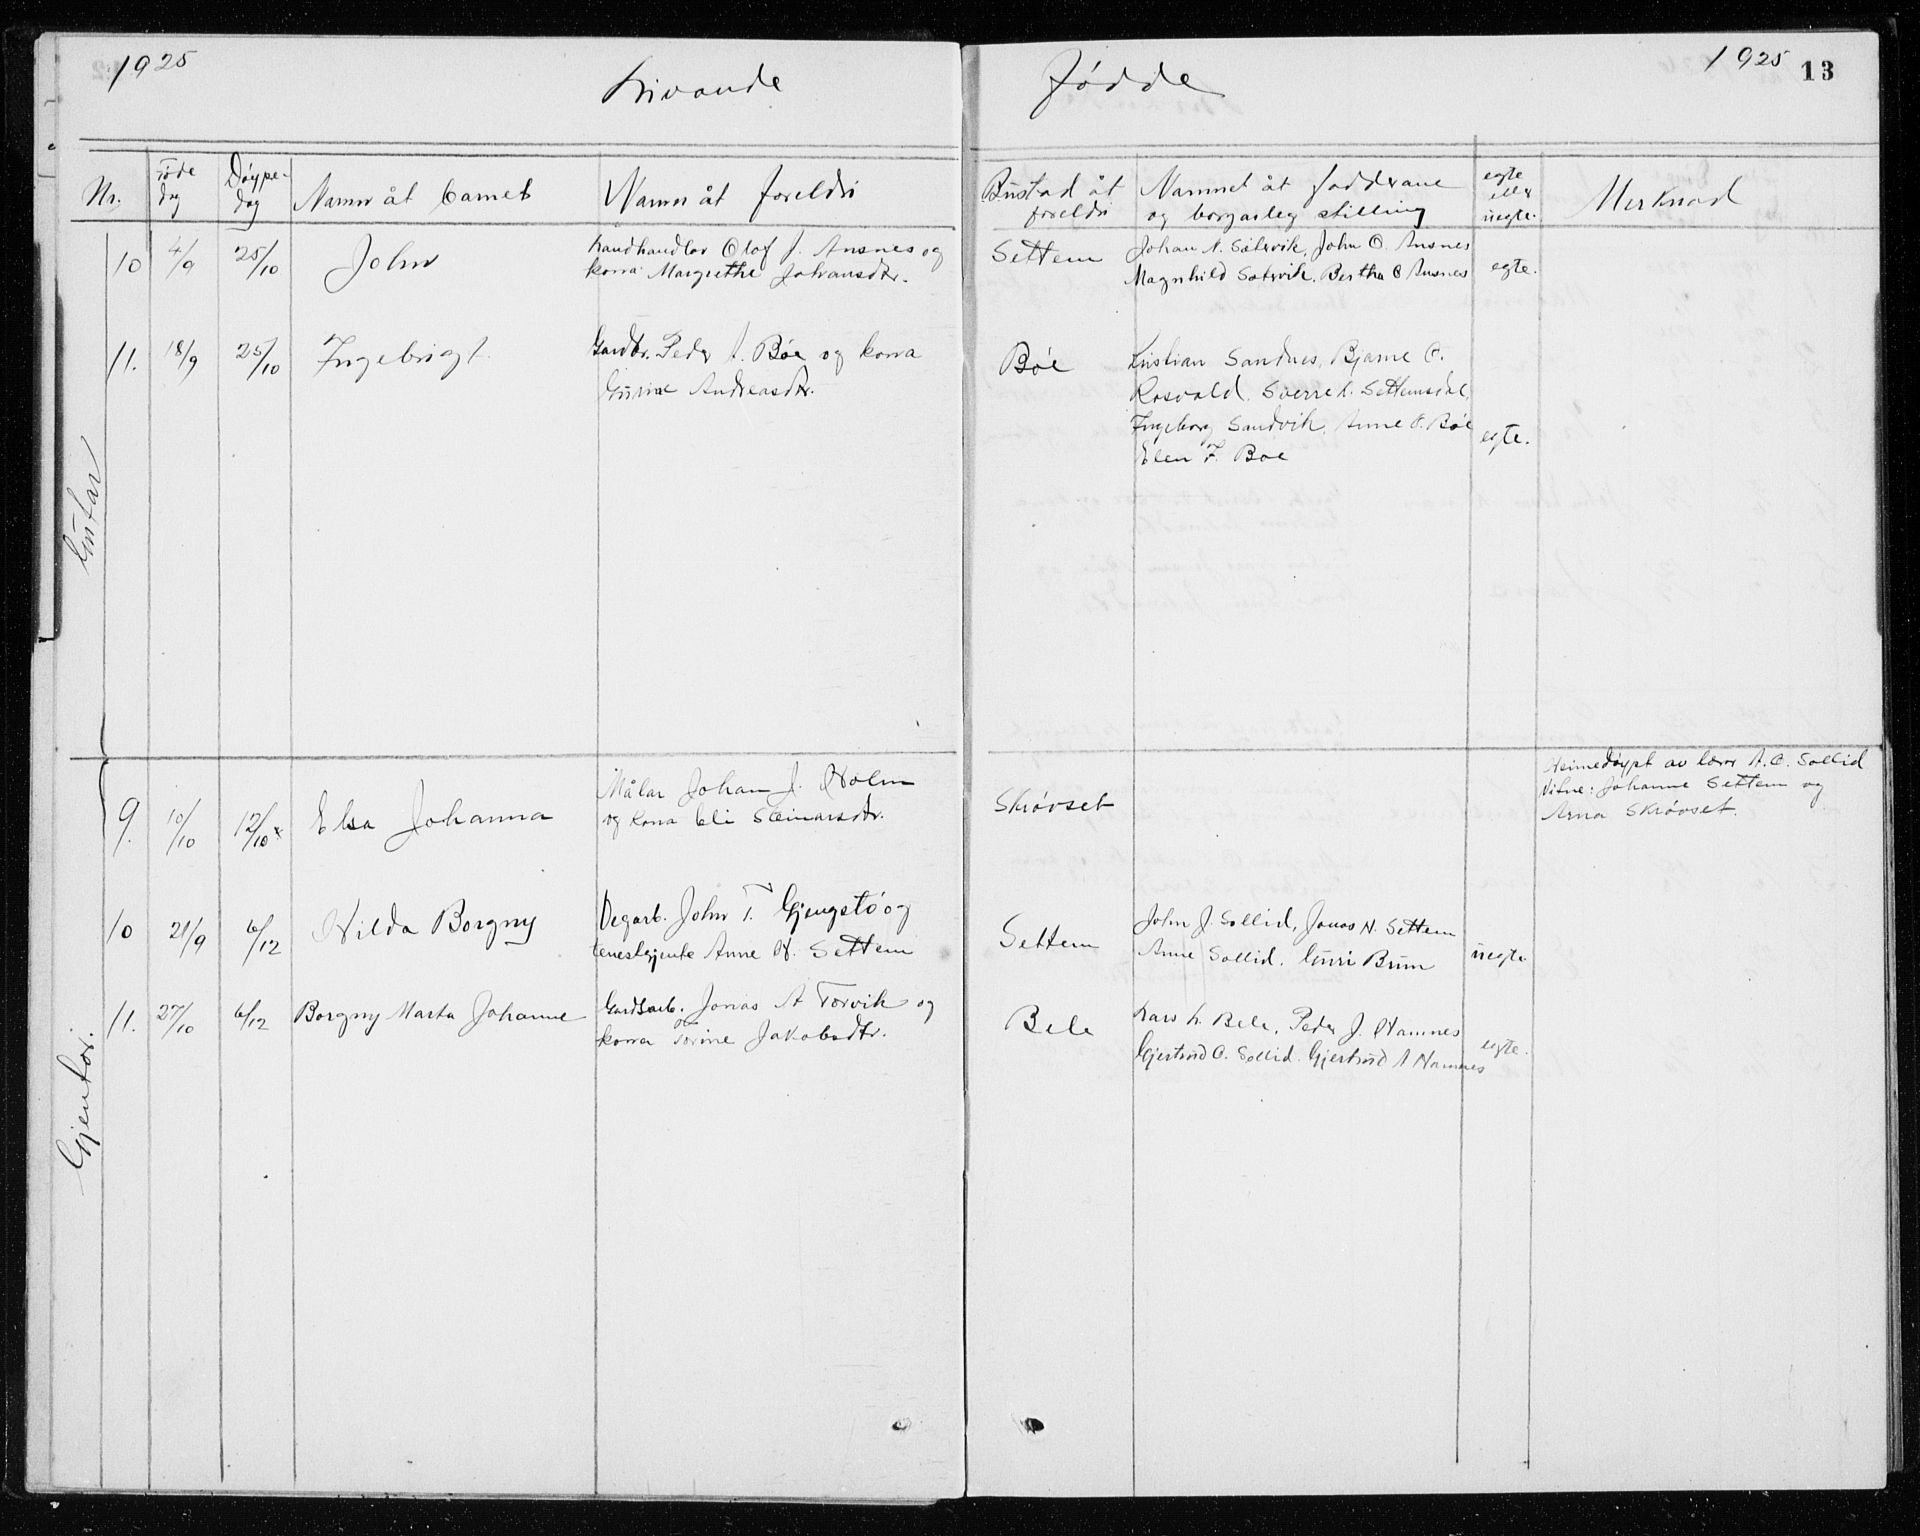 1925
Livande
Fødde
1925
13
Nr.
Føde
dag
Døype-
dag
Namn åt barnet
Namn åt foreldri
Bustad åt
foreldri
Namnet åt fadderane
og borgarleg stilling
egte
eller
uegte.
Merknad
Gutar
10
4/9
25/10
John
Landhandlar Olaf J. Ansnes og
kona Margrethe Johansdtr.
Settem
Johan N. Sætervik, John O. Ansnes
Magnhild Sætervik, Bertha O Ansnes
egte.
11.
18/9
25/10
Ingebrigt
Gardbr. Peder A. Bøe og kona
Gurine Andreasdtr.
Bøe
Kristian Sandnes, Bjarne O.
Rosvold, Sverre L. Settemsdal,
Ingeborg Sandvik, Anne P. Bøe
Elen F. Bøe
egte.
Gjentor.
9.
10/10
12/10 x
Elsa Johanna
Målar Johan J. Holm
og kona Eli Steinarsdtr.
Skrøvset
Heimedøypt av lærar A. O. Sollid
Vitne: Johanne Settem og
Arna Skrøvset.
10
21/9
6/12
Hilda Borgny
Vegarb. John T. Gjengstø og
tenestgjente Anne H. Settem
Settem
John J. Sollid, Jonas H. Settem
Anne Sollid. Guri Brun
uegte
11.
27/10
6/12
Borgny Marta Johanne
Gardsarb. Jonas A Torvik og
kona Torine Jakobsdtr.
Bele
Lars L. Bele, Peder J. Hamnes
Gjertrud O. Sollid. Gjertrud A Hamnes
egte.